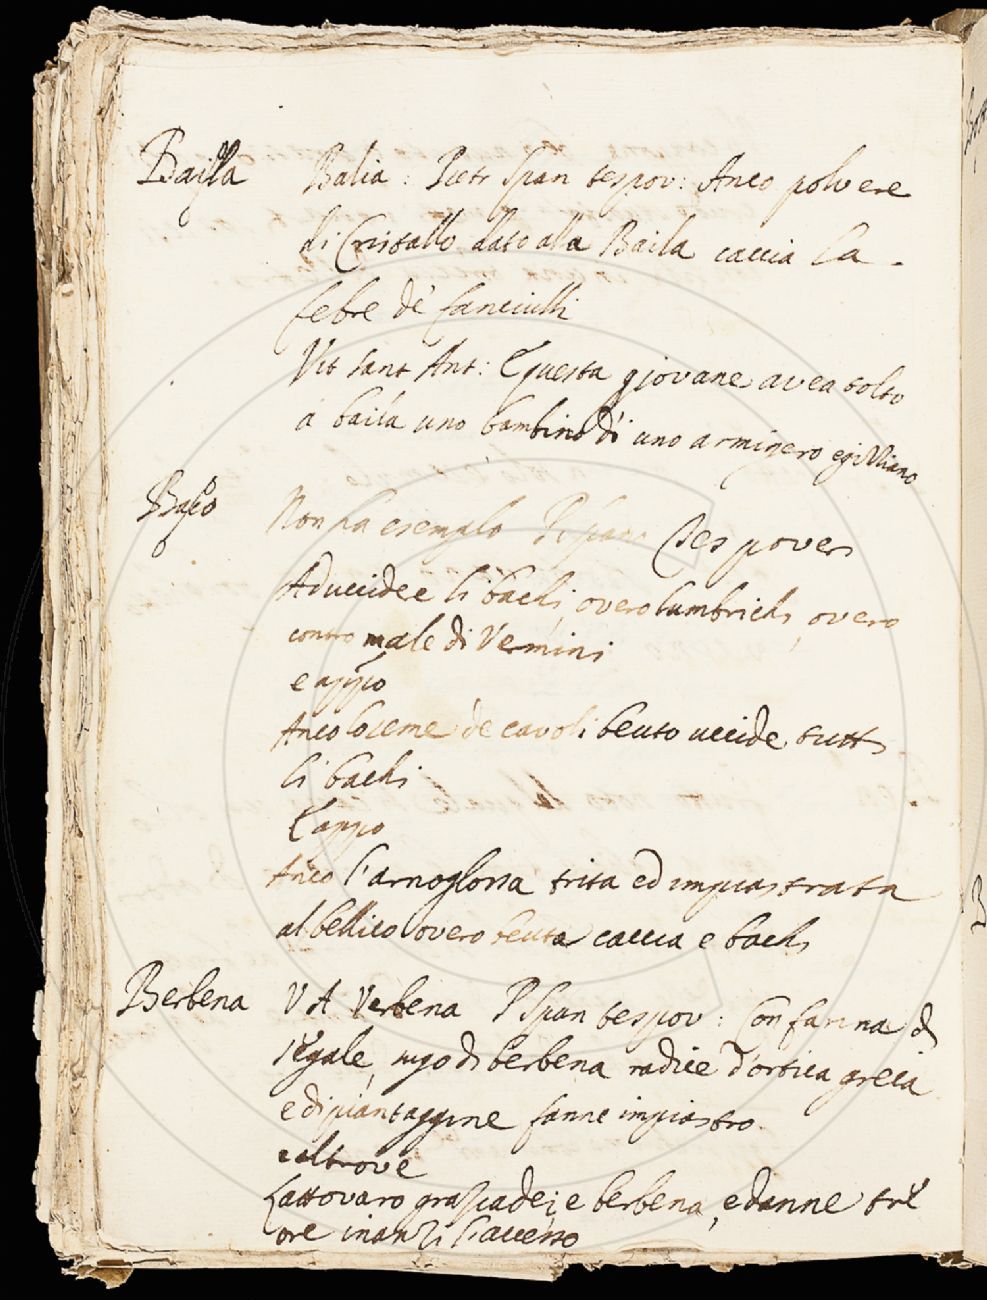 Baila Balia: Pietr Span tes pov: Anco polvere
di Cristallo dato alla Baila caccia la
febre de' fanciulli
Vit Sant Ant: Questa giovane avea tolto
a baila uno bambino di uno armigero egittiano
Baco Non ha esempio P Span Tes pover
Ad uccidere li bachi, overo lumbrichi, overo
contro male di Vermini
e appo
Anco lo seme de cavoli beuto uccide tutti
li bachi
E appo
Anco l'arnoglossa trita ed impiastrata
al bellico overo beuta caccia e bachi
Berbena V A Verbena P Span tes pov: Con farina di
segale, sugo di berbena radice d'ortica greca
e di piantaggine fanne impiastro
e altrove
Lattovaro grasiadei e berbena, e danne tre
ore inanzi l'accesso